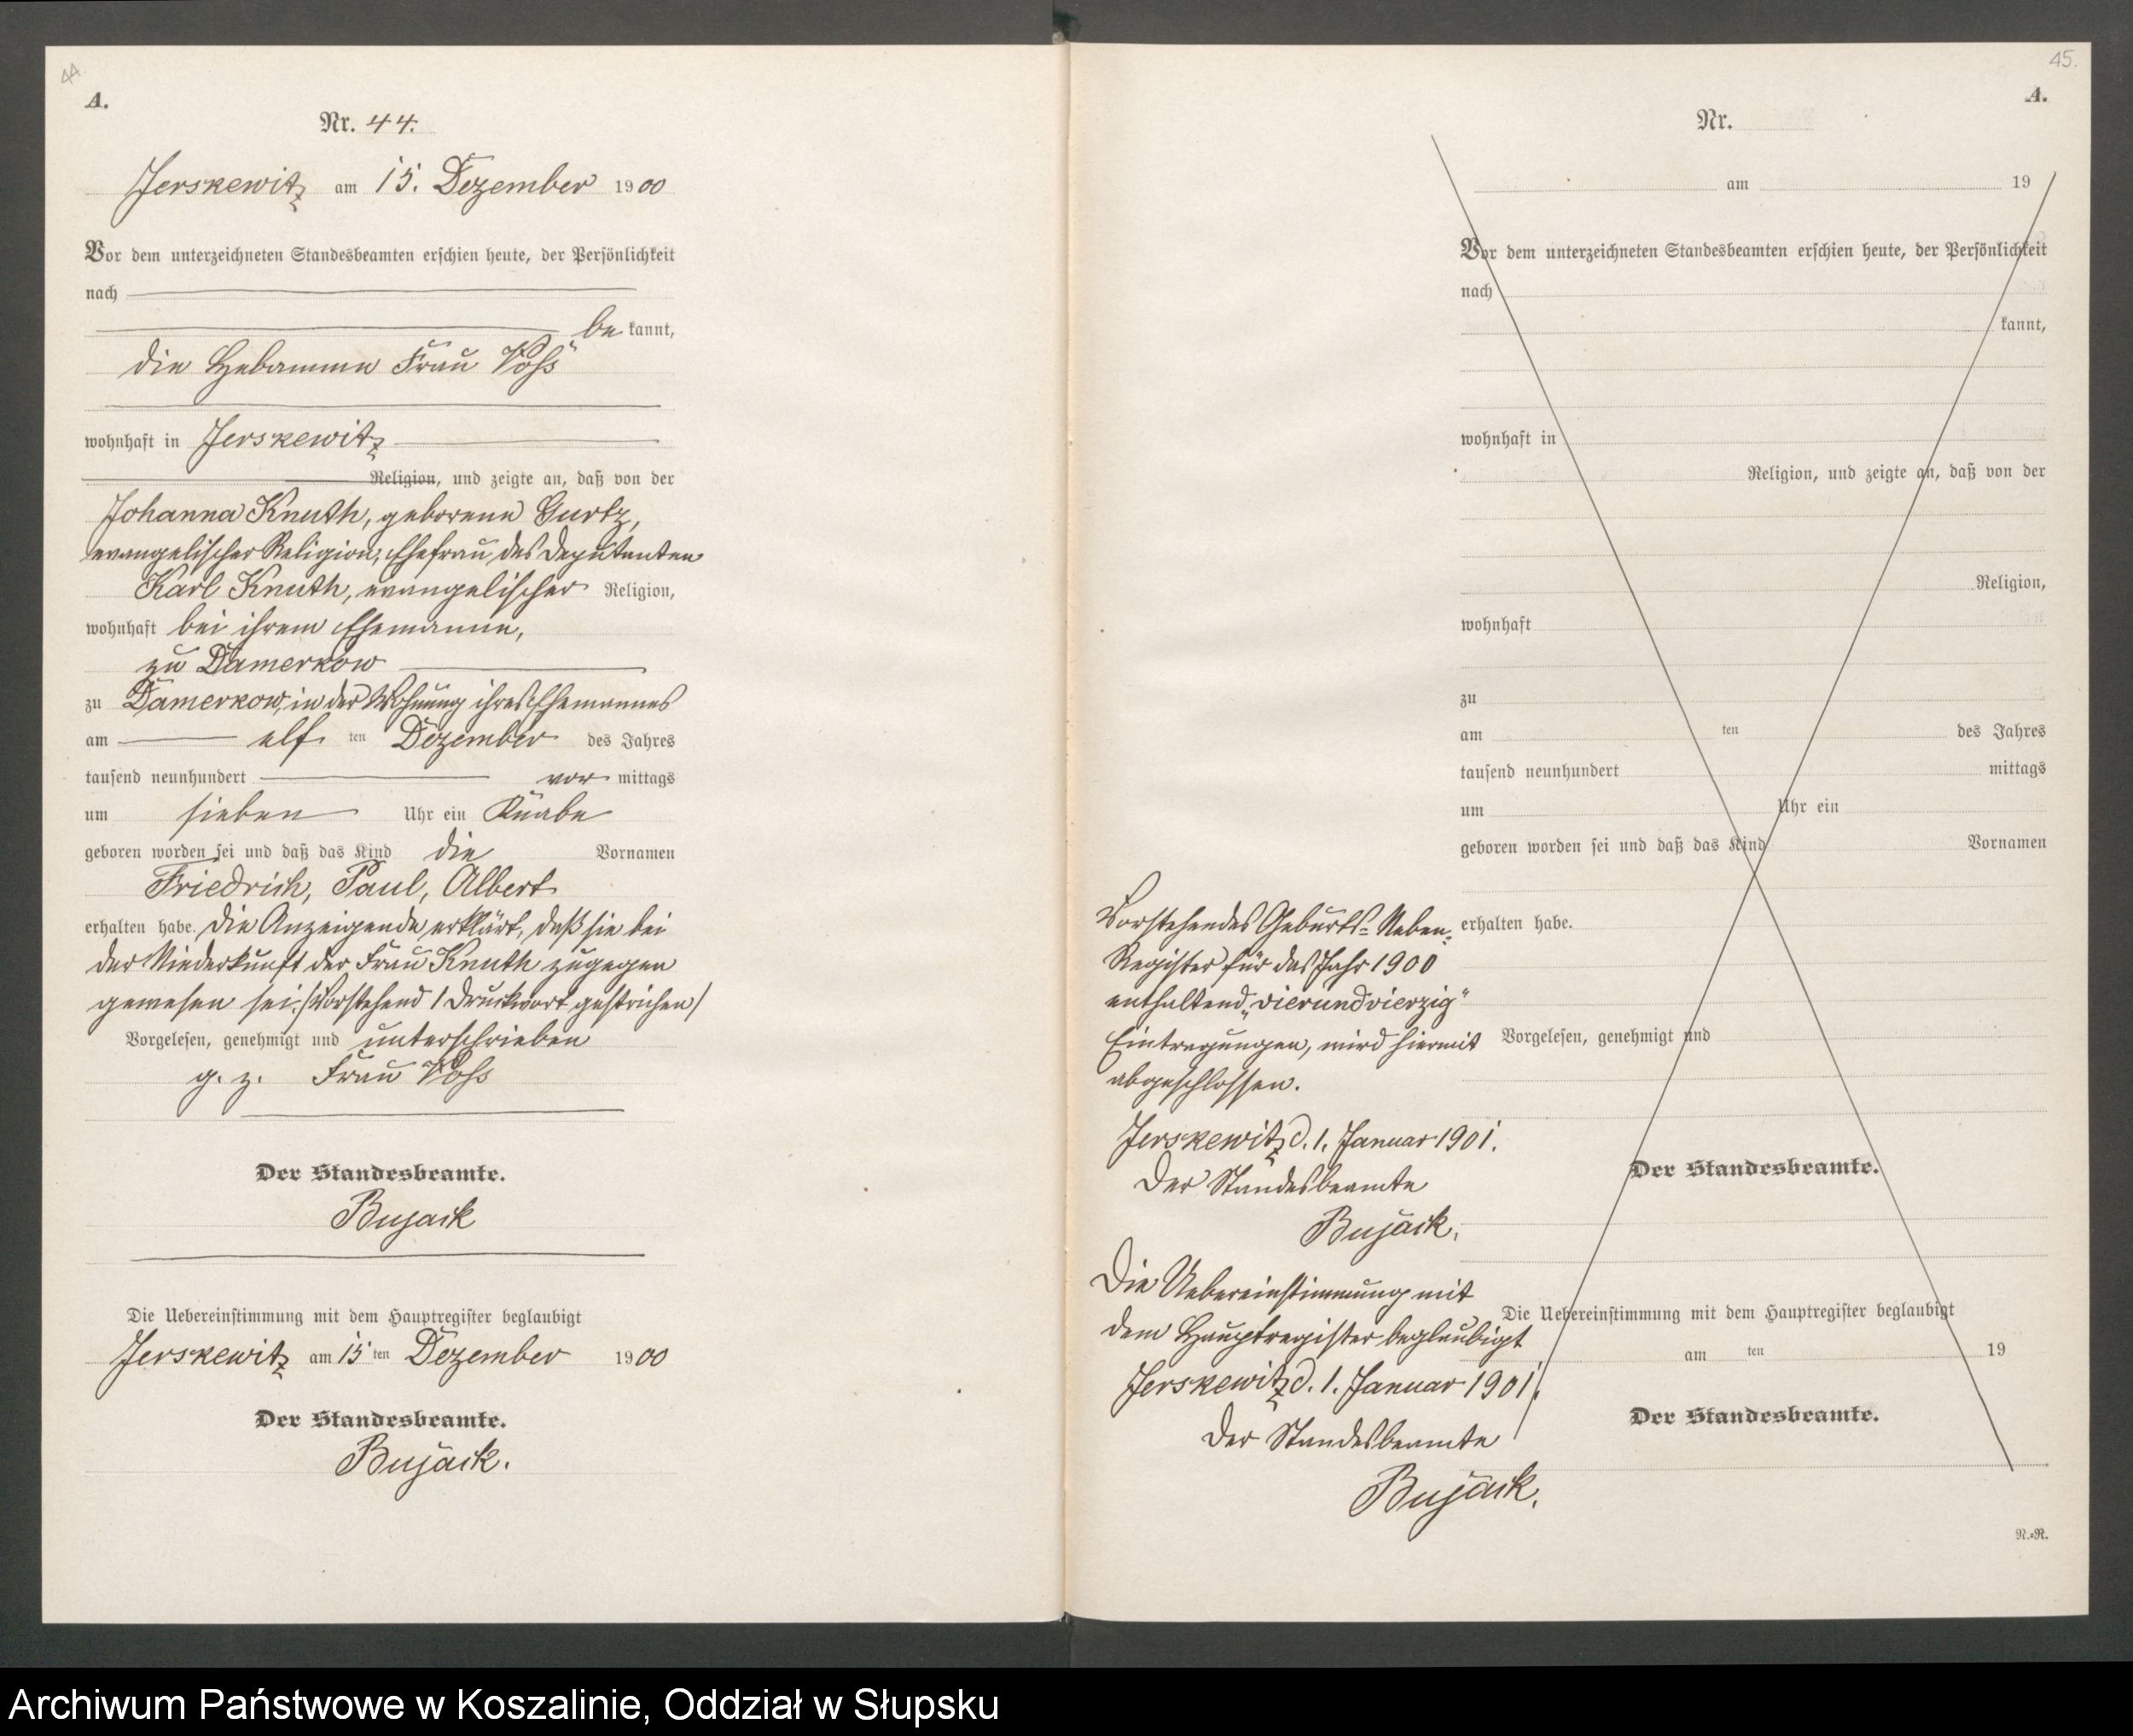 44
A.
Nr. 44.
Jerskewitz am 15. Dezember 1900
Vor dem unterzeichneten Standesbeamten erschien heute, der Persönlichkeit
nach
be kannt,
die Hebamme Frau „Voß“
wohnhaft in Jerskewitz
Religion, und zeigte an, daß von der
Johanna Knuth, geborene Gurtz,
evangelischer Religion, Ehefrau des Deputanten
Karl Knuth, evangelischer Religion,
wohnhaft bei ihrem Ehemanne,
zu Damerkow
zu Damerkow, in der Wohnung ihres Ehemannes
am elf ten Dezember des Jahres
tausend neunhundert vor mittags
um sieben Uhr ein Knabe
geboren worden sei und daß das Kind die Vornamen
Friedrich, Paul, Albert
erhalten habe. Die Anzeigende erklärt, daß sie bei
der Niederkunft der Frau Knuth zugegen
gewesen sei. /Vorstehend 1 Druckwort gestrichen/
Vorgelesen, genehmigt und unterschrieben
g. z. Frau Voß
Der Standesbeamte.
Bujack
Die Uebereinstimmung mit dem Hauptregister beglaubigt
Jerskewitz am 15 ten Dezember 1900
Der Standesbeamte.
Bujack.
45.
A.
Nr.
am 19
Vor dem unterzeichneten Standesbeamten erschien heute, der Persönlichkeit
nach
kannt,
wohnhaft in
Religion, und zeigte an, daß von der
Religion,
wohnhaft
zu
am ten des Jahres
tausend neunhundert mittags
um Uhr ein
geboren worden sei und daß das Kind Vornamen
erhalten habe.
Vorgelesen, genehmigt und
Der Standesbeamte.
Die Uebereinstimmung mit dem Hauptregister beglaubigt
am ten 19
Der Standesbeamte.
N.=R.
Vorstehendes Geburts=Neben=
Register für das Jahr 1900
enthaltend „vierundvierzig“
Eintragungen, wird hiermit
abgeschlossen.
Jerskewitz d. 1. Januar 1901.
Der Standesbeamte
Bujack.
Die Uebereinstimmung mit
dem Hauptregister beglaubigt
Jerskewitz d. 1. Januar 1901.
Der Standesbeamte
Bujack.
Archiwum Państwowe w Koszalinie, Oddział w Słupsku